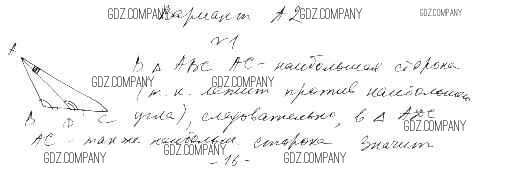 GDZ.COMPANY Вариант А2 GDZ.COMPANY GDZ.COMPANY
№1
A
В △ ABC AC - наибольшая сторона
GDZ.COMPANY GDZ.COMPANY
(т. к. лежит против наибольшего
B D C угла), следовательно, в △ ADC
GDZ.COMPANY
AC - также наибольш. сторона значит
GDZ.COMPANY GDZ.COMPANY GDZ.COMPANY
- 16 -